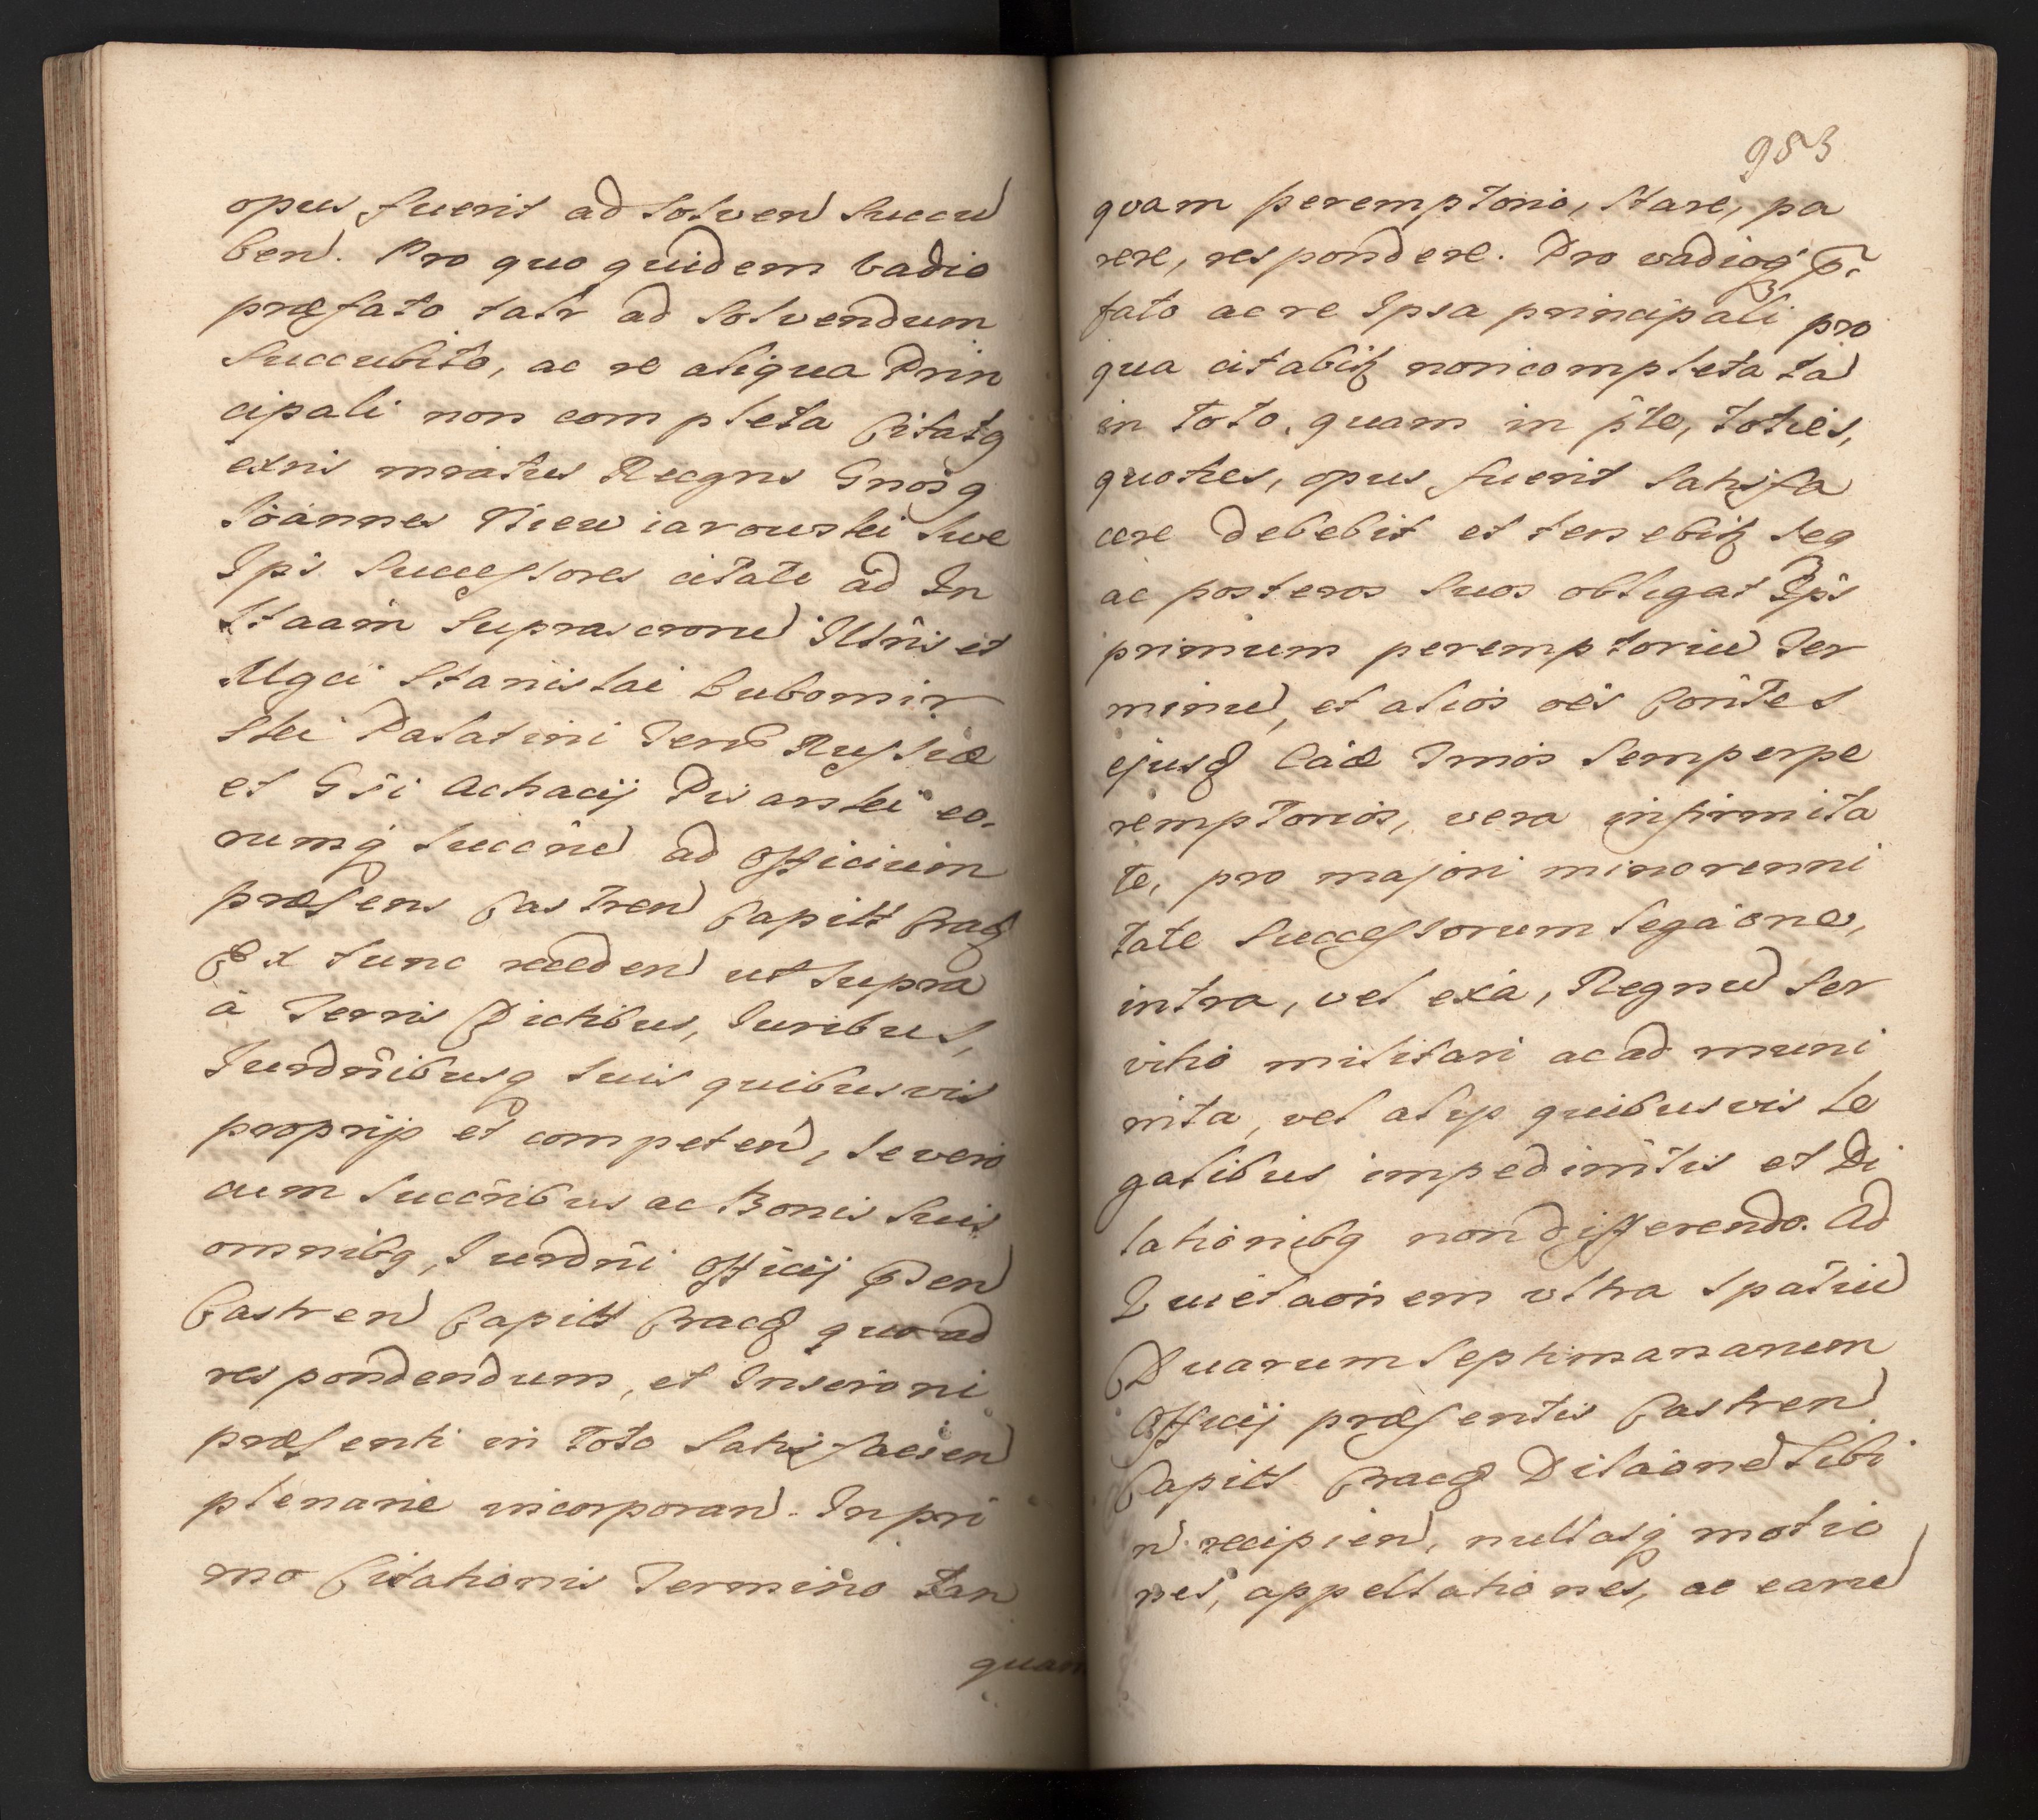 opus fuerit ad solven succu
ben. Pro quo quidem vadio
præfato talr ad solvendum
succubito, ac re aliqua Prin
cipali non completa Citatq
exnis mratus Recgns Gnosq
Joannes Niewiarowski sive
Ipi Successores citati ad In
staām suprascronu Illris et
Mgci Stanislai Lubomir
ski Palatini Terrr Russiæ
et Gsi Achacij Pisarski eo-
rumq succru ad Officium
præsens Castren Capitt Crac
Ex tunc receden ut supra
à Terris Dictibus, Juribus,
Jurdnibusq suis quibusvis
proprijs et competen, se vero
cum succribus ac Bonis suis
omnibq, Jurdni Officij Psen
Castren Capitt Crac quo ad
respondendum, et Inscroni
præsenti in toto satisfacien
plenarie incorporan. In pri
mo Citationis Termino tan
quam
953
quam peremptorio, stare, pa
rere, respondere. Pro vadioq p-
fato ac re Ipsa principali pro
qua citabit non completa ta
in toto, quam in pte, toties,
quoties, opus fuerit satisfa
cere debebit et tenebit seq
ac posteros suos obligat Ips
primum peremptoriu Ter
minu, et alios oēs Contes
ejusd Cāæ Tmos semper pe
remptorios, vera infirmita
te, pro majori minorenni
tate Successorum legāone,
intra, vel exa, Regnu ser
vitio militari ac ad muni
nita, vel alijs quibusvis le
galibus impedimtis et Di
lationibq non differendo. Ad
Quietaōnem ultra spatiu
Duarum septimanarum
Officij præsentis Castren
Capitt Crac Dilāone sibi
n recipien, nullasq motio
nes, appellationes, ac earu